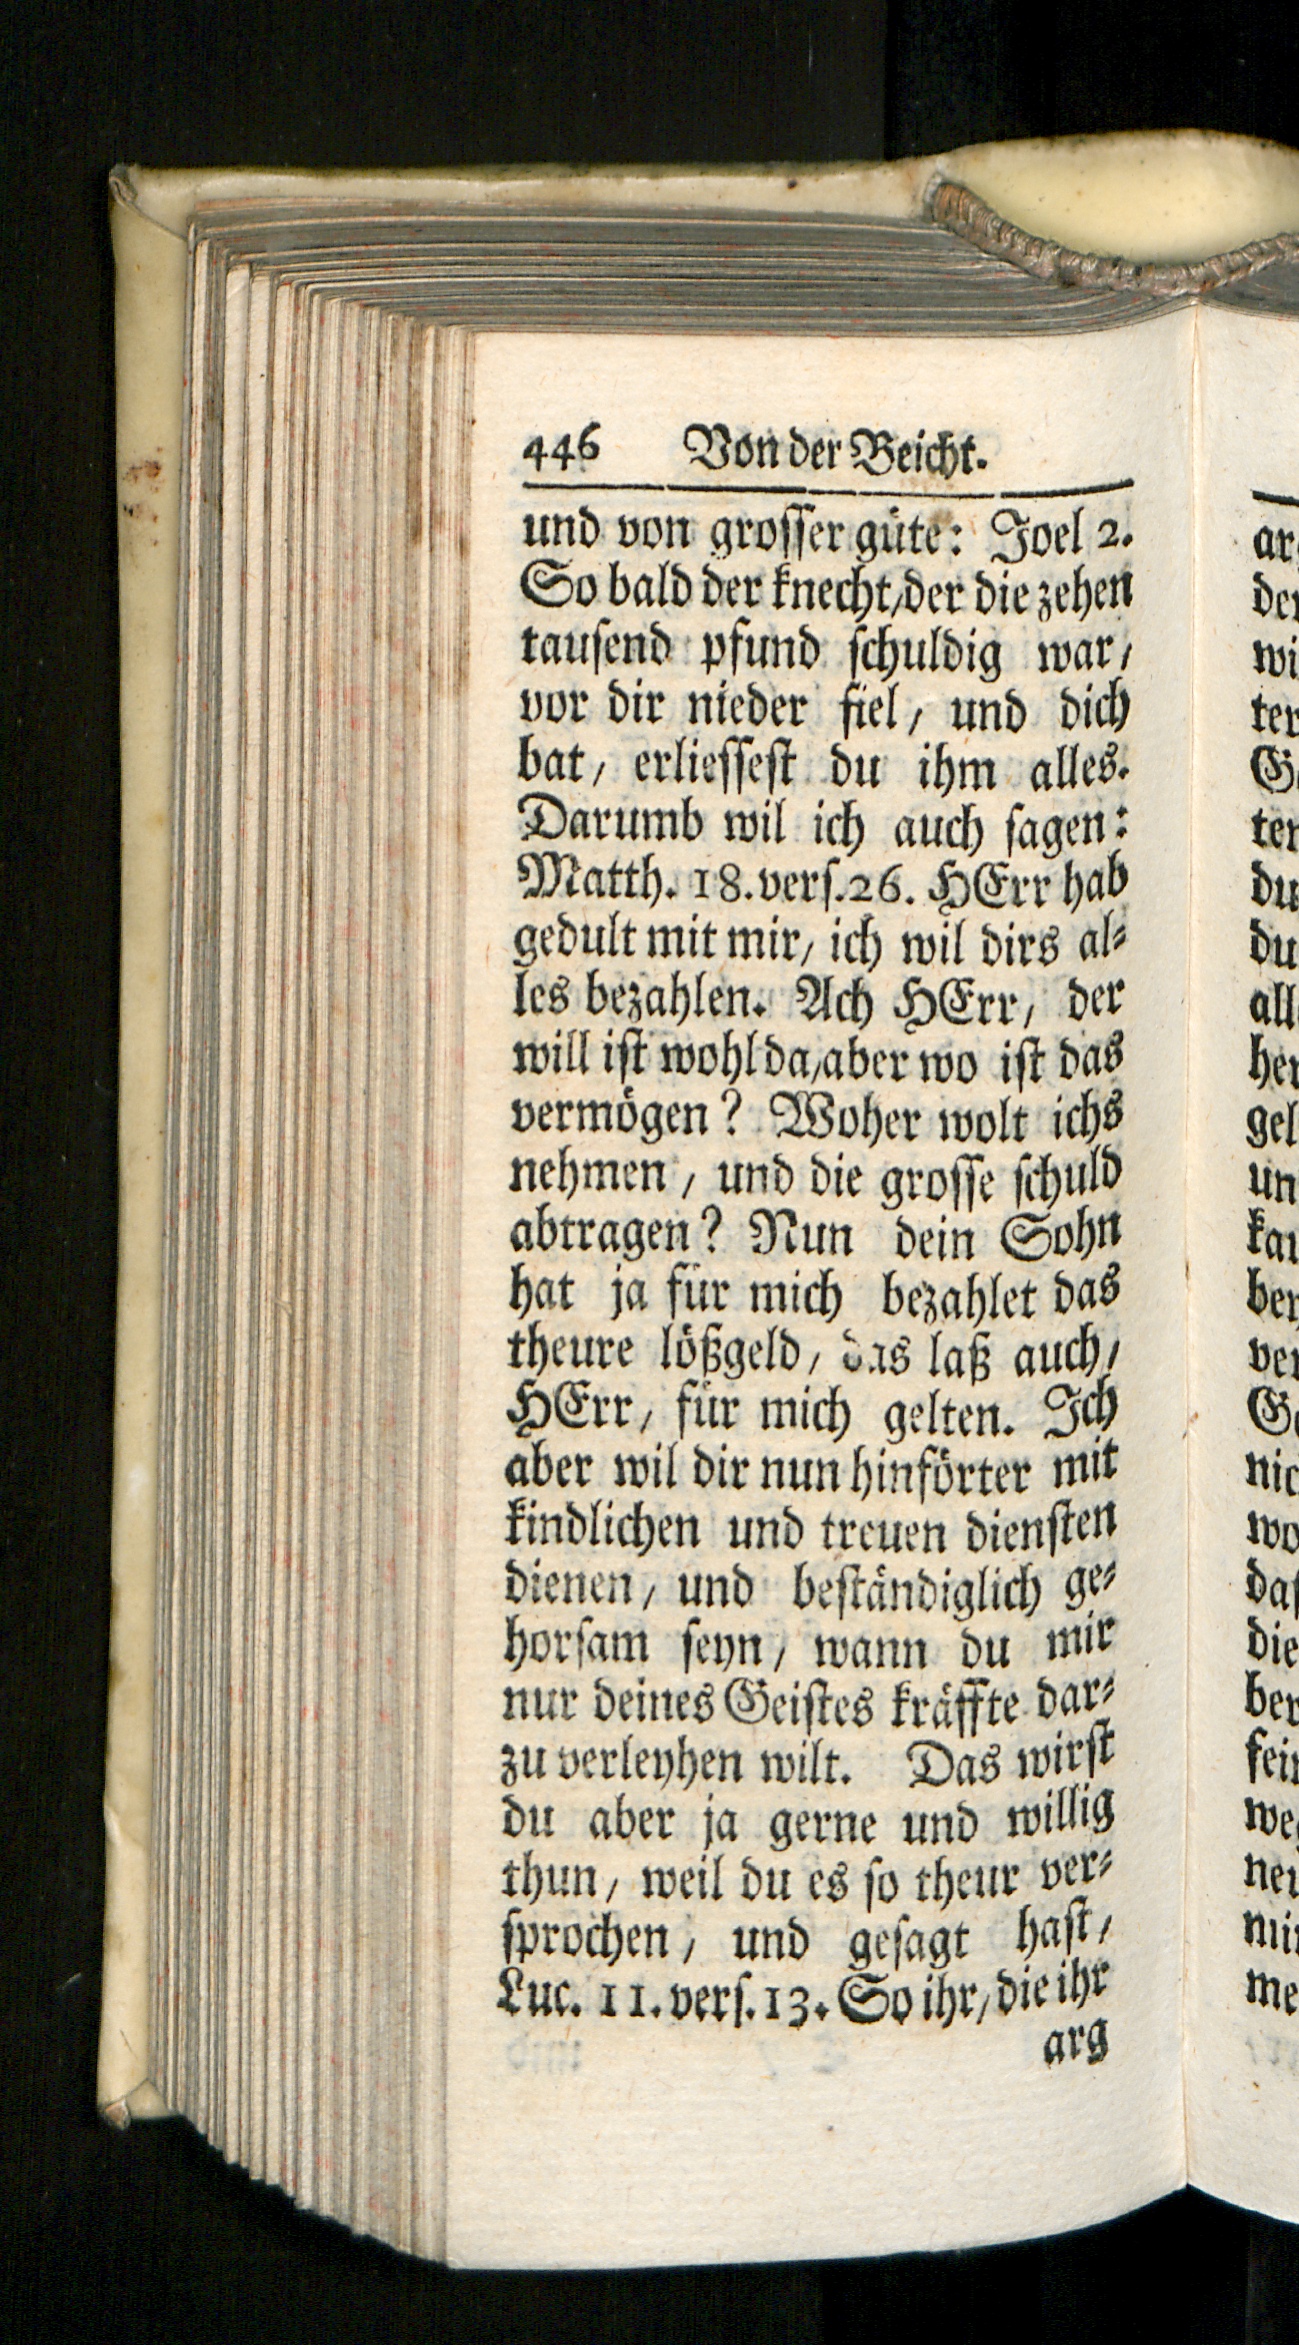 446 Von der Beicht.
und von groſſer güte: Joel 2.
So bald der knecht/der die zehen
tauſend pfund ſchuldig war/
vor dir nieder fiel/ und dich
bat/ erlieſſeſt du ihm alles.
Darumb wil ich auch ſagen:
Matth. 18. verſ. 26. HErr hab
gedult mit mir/ ich wil dirs al⸗
les bezahlen. Ach HErr/ der
will iſt wohl da/aber wo iſt das
vermögen? Woher wolt ichs
nehmen/ und die groſſe ſchuld
abtragen? Nun dein Sohn
hat ja für mich bezahlet das
theure lößgeld/ das laß auch/
HErr/ für mich gelten. Ich
aber wil dir nun hinförter mit
kindlichen und treuen dienſten
dienen/ und beſtändiglich ge⸗
horſam ſeyn/ wann du mir
nur deines Geiſtes kräffte dar⸗
zu verleyhen wilt. Das wirſt
du aber ja gerne und willig
thun/ weil du es ſo theur ver⸗
ſprochen/ und geſagt haſt/
Luc. 11. verſ. 13. So ihr/die ihr
arg